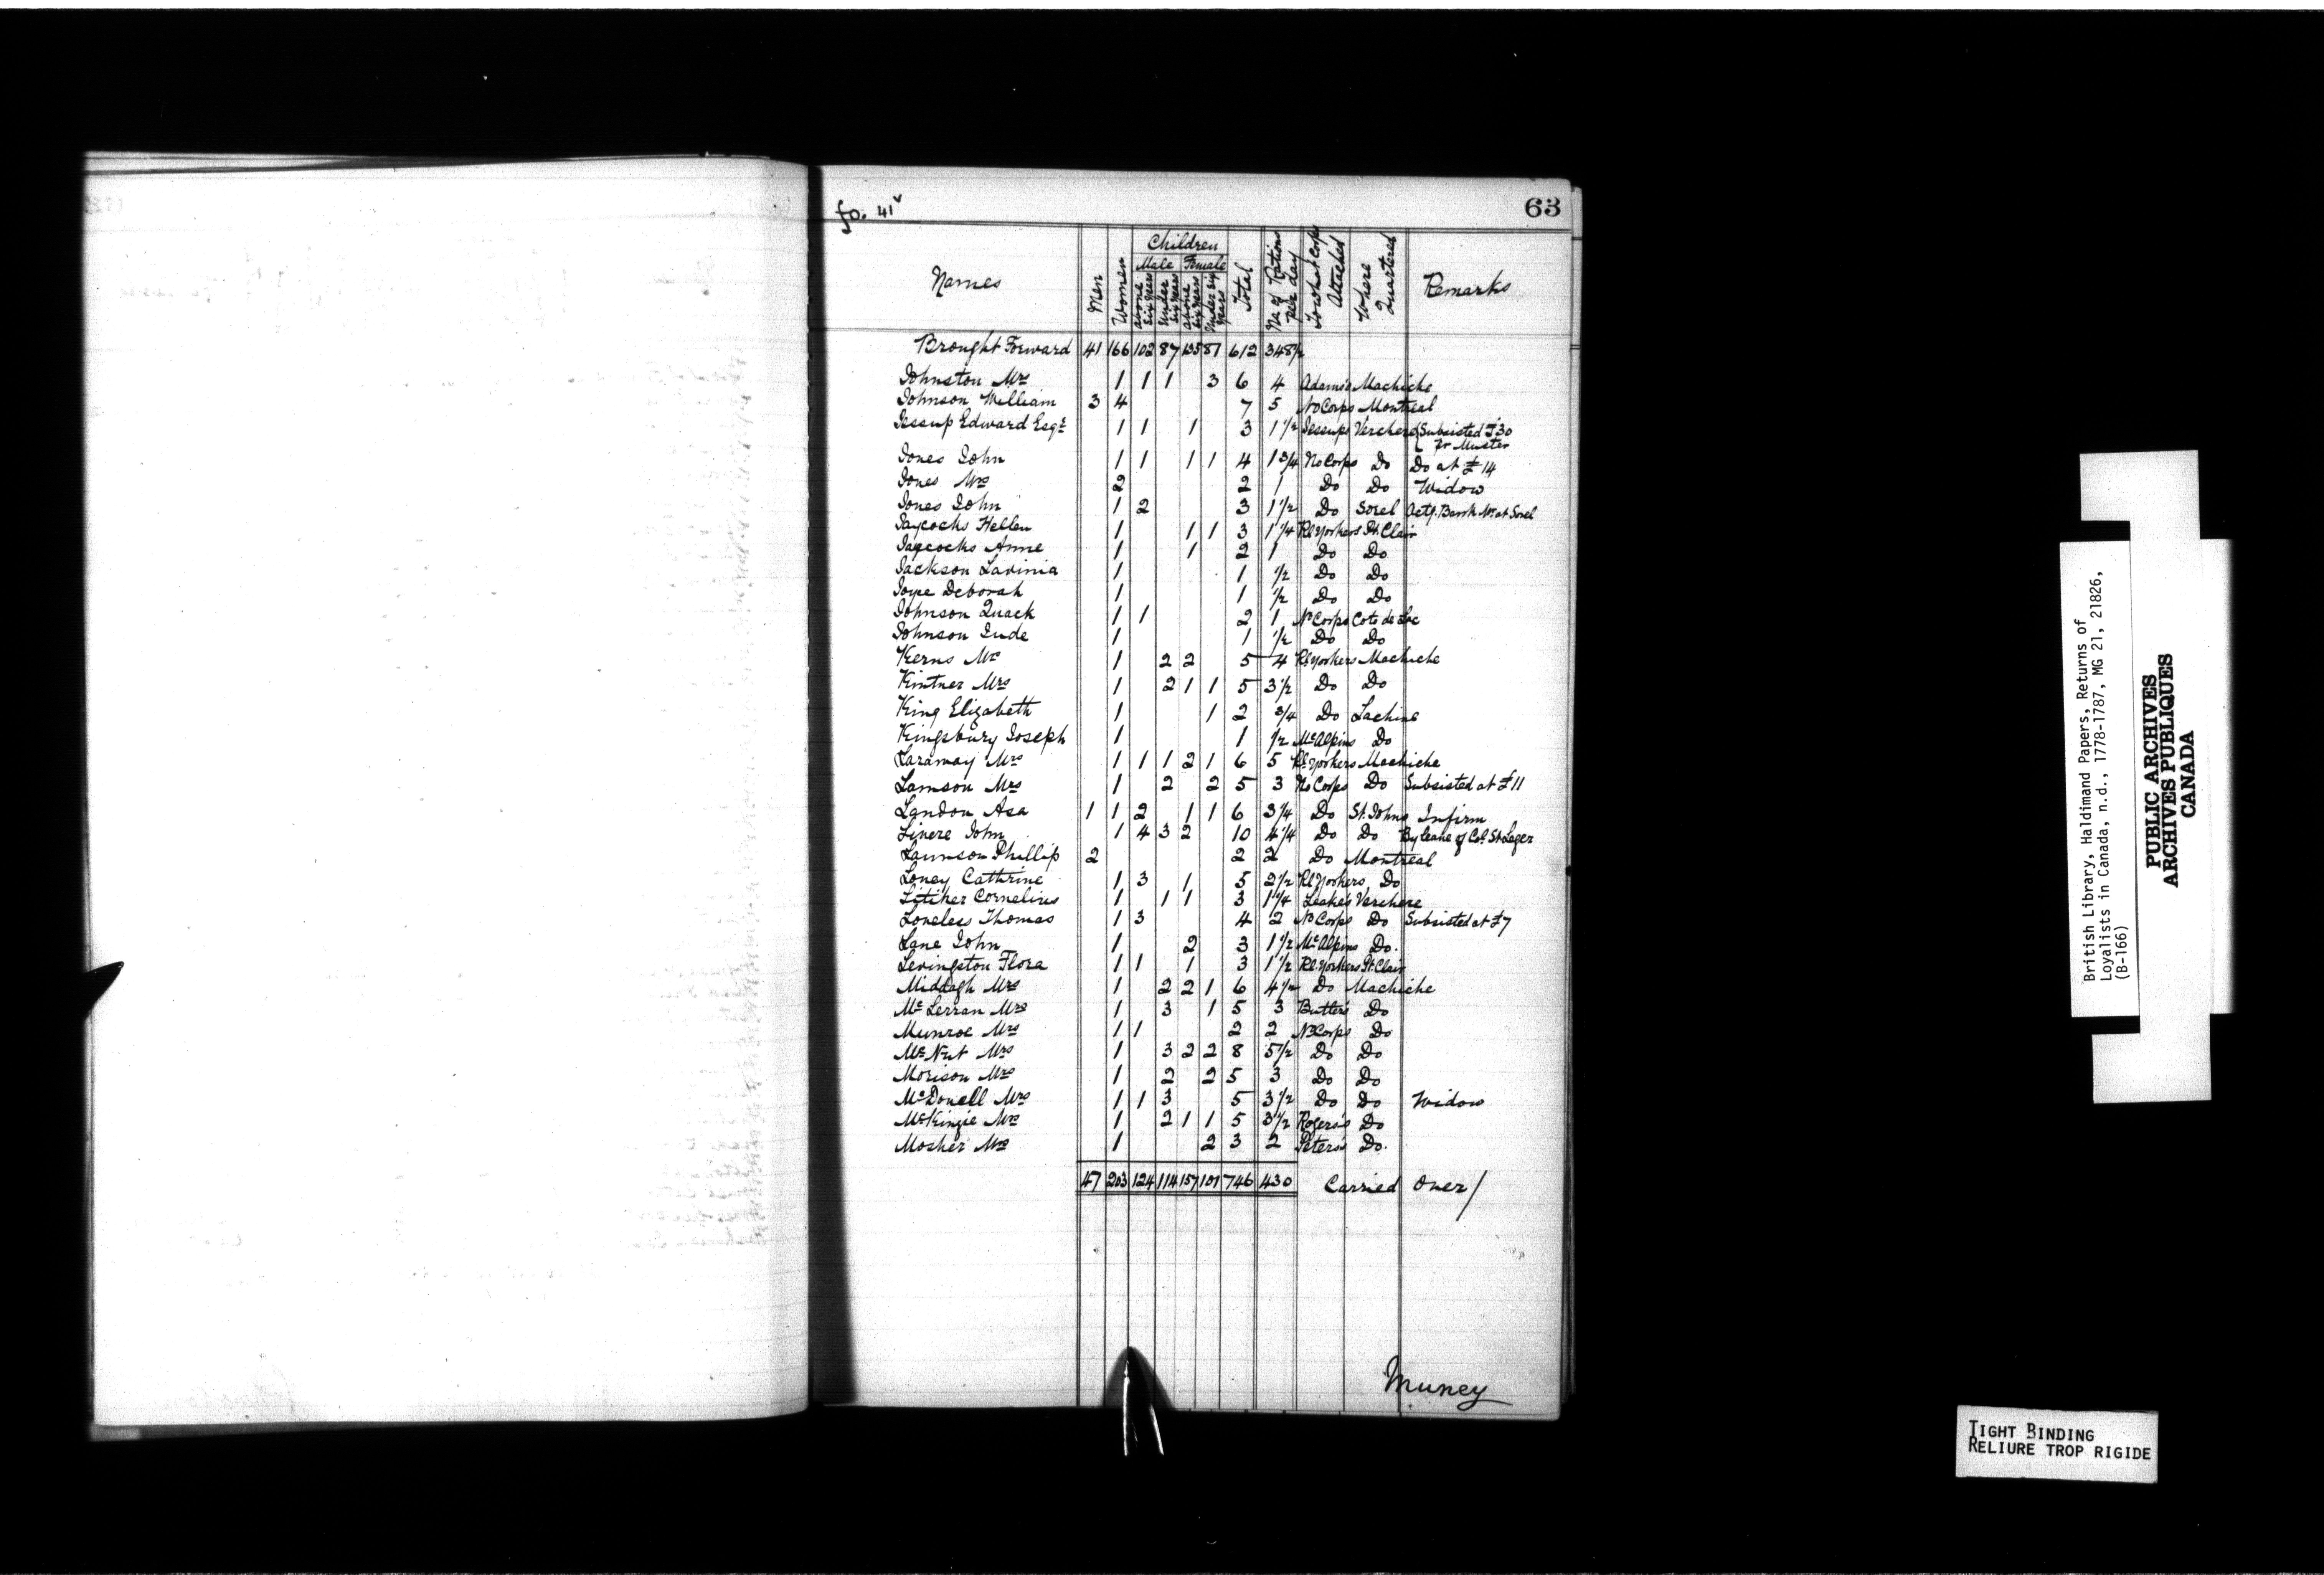 fo. 41v
63
Names Men Women Children Male above six years Under six years Female above six years Under six years Total No of Rations per Day To what Corps Attached Where Quartered Remarks
Brought Forward 41 166 102 87 135 81 612 348 1/2
Johnston Mrs 1 1 1 3 6 4 Adams's Machiche
Johnson William 3 4 7 5 No Corps Montreal
Jessup Edward Esqr 1 1 1 3 1 1/2 Jessups Verchere { Subsisted £30
Pr Muster
Jones John 1 1 1 1 4 1 3/4 No Corps Do Do at £14
Jones Mrs 2 2 1 Do Do Widow
Jones John 1 2 3 1 1/2 Do Sorel Actg. Barrk Mr at Sorel
Jaycocks Hellen 1 1 1 3 1 1/4 Rl Yorkers Pt. Clair
Jaycocks Anne 1 1 2 1 Do Do
Jackson Lavinia 1 1 1/2 Do Do
Joyce Deborah 1 1 1/2 Do Do
Johnson Quack 1 1 2 1 No Corps Coto de Lac
Johnson Jude 1 1 1/2 Do Do
Kerns Mrs 1 2 2 5 4 Rl Yorkers Machiche
Kintner Mrs 1 2 1 1 5 3 1/2 Do Do
King Elizabeth 1 1 2 3/4 Do Lachine
Kingsbury Joseph 1 1 1/2 McAlpins Do
Laraway Mrs 1 1 1 2 1 6 5 Rl Yorkers Machiche
Lamson Mrs 1 2 2 5 3 No Corps Do Subsisted at £11
Landon Asa 1 1 2 1 1 6 3 1/4 Do St. Johns Infirm
Livere John 1 4 3 2 10 4 1/4 Do Do By leave of Col. St Leger
Launson Phillip 2 2 2 Do Montreal
Loney Cathrine 1 3 1 5 2 1/2 Rl Yorkers Do
Litiker Cornelius 1 1 1 3 1 1/4 Leakes Verchere
Loneless Thomas 1 3 4 2 No Corps Do Subsisted at £7
Lane John 1 2 3 1 1/2 McAlpins Do.
Levingston Flora 1 1 1 3 1 1/2 Rl. Yorkers Pt. Clair
Middagh Mrs 1 2 2 1 6 4 1/2 Do Machiche
Mc Lerran Mrs 1 3 1 5 3 Butlers Do
Munroe Mrs 1 1 2 2 No Corps Do
Mc Nut Mrs 1 3 2 2 8 5 1/2 Do Do
Morison Mrs 1 2 2 5 3 Do Do
McDonell Mrs 1 1 3 5 3 1/2 Do Do Widow
McKinzie Mrs 1 2 1 1 5 3 1/2 Rogers's Do
Mosher Mrs 1 2 3 2 Peters's Do.
47 203 124 114 157 101 746 430 Carried Over/
Muney
British Library, Haldimand Papers, Returns of
Loyalists in Canada, n.d., 1778-1787, MG 21, 21826,
(B-166)
PUBLIC ARCHIVES
ARCHIVES PUBLIQUES
CANADA
TIGHT BINDING
RELIURE TROP RIGIDE